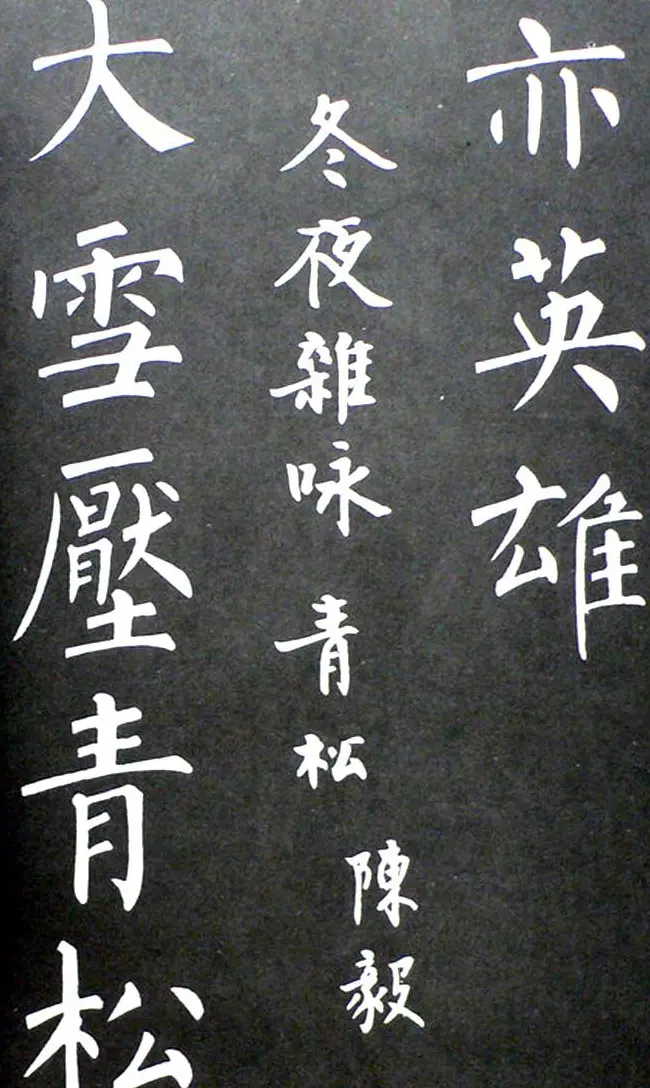 亦英雄
冬夜雜咏 青松 陳毅
大雪壓青松